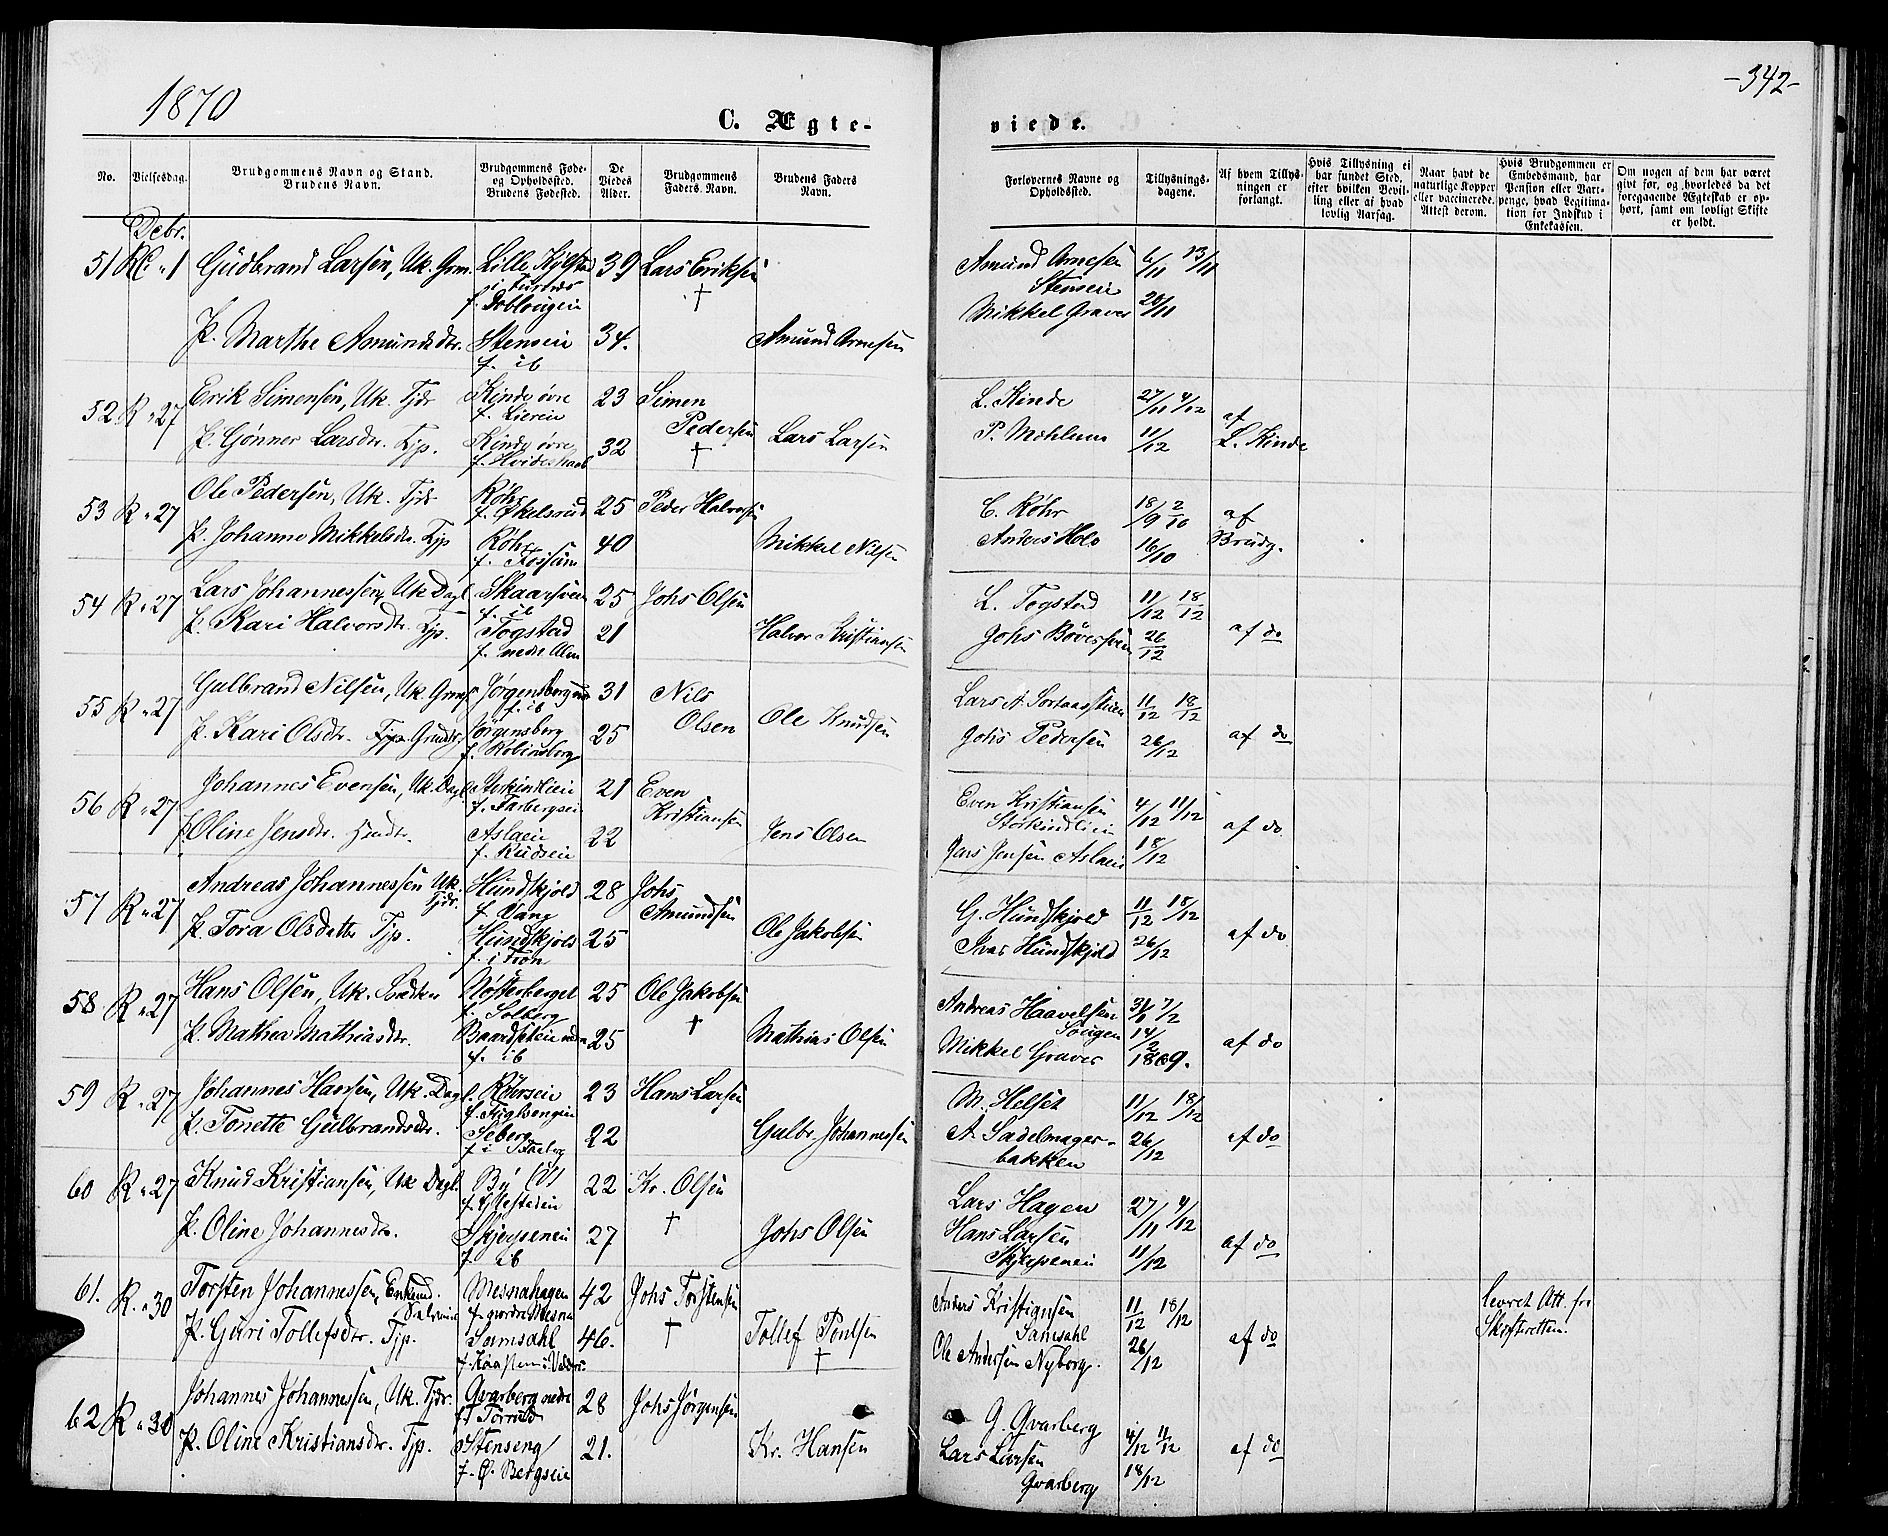 1870
-342-
C. Ægte-
viede.
No.
Vielsesdag.
Brudgommens Navn og Stand.
Brudens Navn.
Brudgommens Føde-
og Opholdssted.
Brudens Fødested.
De
Viedes
Alder.
Brudgommens
Faders Navn.
Brudens Faders
Navn.
Forlovernes Navne og
Opholdssted.
Tillysnings-
dagene.
Af hvem Tillys-
ningen er
forlangt.
Hvis Tillysning ei
har fundet Sted,
efter hvilken Bevil-
ling eller af hvad
lovlig Aarsag.
Naar havt de
naturlige Kopper
eller vaccinerede.
Attest derom.
Hvis Brudgommen er
Embedsmand, har
Pension eller Vart-
penge, hvad Legitima-
tion for Indskud i
Enkekassen.
Om nogen af dem har været
gift før, og hvorledes da det
foregaaende Ægteskab er op-
hørt, samt om lovligt Skifte
er holdt.
Debr.
51 " 1 Gudbrand Larsen, Uk. Grm. Lille Kylstad 39 Lars Eriksen Amund Arnesen 6/11 13/11
f. † Stenseie
Mikkel Graver 20/11
P. Marthe Amundsdtr. Stenseie 34. Amund Arnesen
f. ib
52 R " 27 Erik Simensen, Uk. Tjdr Kinde øvre 23 Simen L. Kinde 27/11 4/12 af
f. Lieeie Pedersen
P. Gjønner Larsdr. Tjp. Kinde øvre 32 † Lars Larsen P. Mæhlum 11/12 L. Kinde
53 R " 27 Ole Pedersen, Uk. Tjdr Røhr 25 Peder Halvorsen C. Røhr 18/9 2/10 af
f. Økelsrud
P. Johanne Mikkelsdr. Tjp Røhr 40 Mikkel Nilsen Anders Holo 16/10 Brudg.
f. Fossum
54 R " 27 Lars Johannessen, Uk Dagl Skaarseie 25 Johs Olsen L. Togstad 11/12 18/12
f. ib
P. Kari Halvorsdr. Tjp. Togstad 21 Halvor Kristiansen Johs 26/12 af do
f. nedre Alm
55 R " 27 Gulbrand Nilsen, Uk. Jørgensberg 31 Nils Lars A. 11/12 18/12
f. ib Olsen
P. Kari Olsdr. Jørgensberg 25 Ole Knudsen Johs Pedersen 26/12 af do
f. Robinsberg
56 R " 27 Johannes Evensen, Uk. Dagl Storkindlien 21 Even Even Kristiansen 4/12 11/12
f. Farbergseie Kristiansen Storkindlien
P. Oline Jensdr. Aslaeie 22 Jens Olsen Jens Jensen Aslaeie 18/12 af do
f. Rudseie
57 R " 27 Andreas Johannessen Uk. Tjdr. Hundskjold 28 Johs G. Hundskjold 11/12 18/12
f. Vang Amundsen
P. Tora Olsdatter Tjp. Hundskjold 25 Ole Jakobsen Ivar Hundskjold 26/12 af do
f. i Fron
58 R " 27 Hans Olsen, Uk. Nøsterberget 25 Ole Jakobsen Andreas Haavelsen 31/1 7/2
f. Solberg † Sougen 14/2
P. Mathea Mathiasdr. Baardseteie nedre 25 Mathias Olsen Mikkel Graver 1869. af do
f. ib
59 R " 27 Johannes Hansen, Uk. Dagl. Røterseie 23 Hans Larsen M. Helset 11/12 18/12
P. Tonette Gulbrandsdr. Seberg 22 Gulbr. Johannessen A. Sadelmager- 26/12 af do
f. i Faaberg bakken
60 R " 27 Knud Kristiansen, Uk Dagl. By 22 Kr. Olsen Lars Hagen 27/11 4/12
†
P. Oline Johannesdr. Skjeypeneie 27 Johs Olsen Hans Larsen 11/12 af do
f. ib Skjeypeneie
61. R. " 30 Torsten Johannessen, Enkemd. Mesnahagen 42 Johs Torstensen Anders Kristiansen 11/12 18/12 levret Att. fr
f. nordre Mesna † Samsahl Skifteretten.
P. Guri Tollefsdr. Tjp. Samsahl 46. Tollef Poulsen Ole Andersen Nyborg. 26/12 af do
†
62 R " 30 Johannes Johannessen, Uk. Tjdr. Gvarberg nedre 28 Johs Jørgensen G. Gvarberg 4/12 11/12
P. Oline Kristiansdr. Tjp. Stenseng 21. Kr. Hansen Lars Larsen 18/12 af do
f. Ø. Bergseie Gvarberg